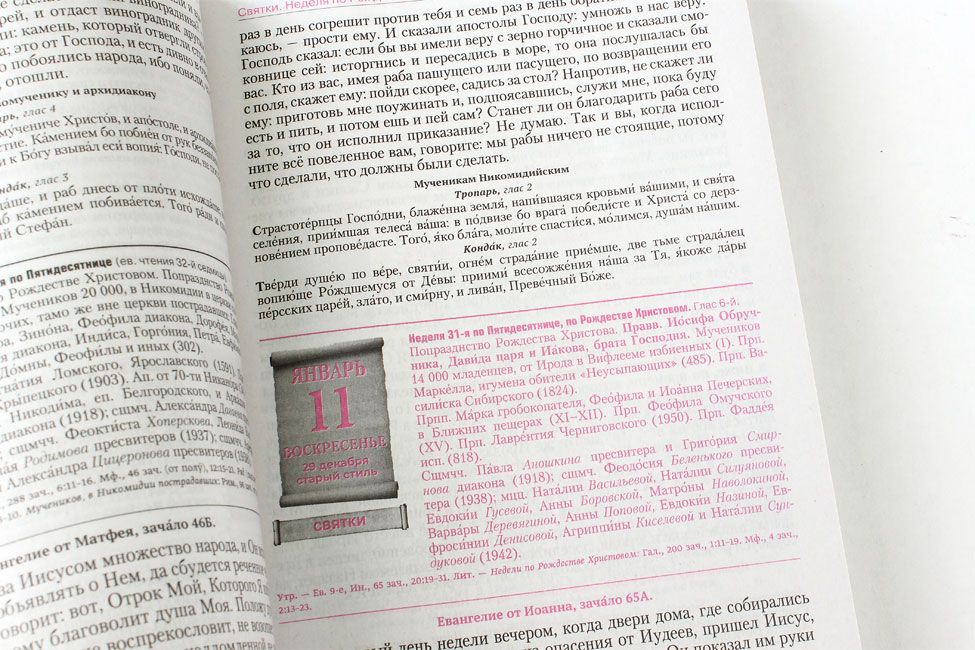 виноградника
рей, и отдаст виноградник друг
ли: камень, который отвергли стр
а; это от Господа, и есть дивно в о
о побоялись народа, ибо поняли,
отошли.
омученику и архидиакону
арь, глас 4
мучениче Христо́в, и апо́столе, и
стие. Ка́мением бо побие́н от рук
и к Бо́гу взыва́л еси́ вопия́: Го́споди, не
нда́к, глас 3
да́ше, и раб днесь от пло́ти исхожда́ше
аб ка́мением побива́ется. Того́ ра́ди и
ый Стефа́н.
я по Пятидесятнице (ев. чтения 32-й седмицы)
о Рождестве Христовом. Попразднство
Мучеников 20 000, в Никомидии в церкви
очих, тамо же вне церкви пострадавших:
ра, Зино́на, Феофи́ла диакона, Дорофе́я,
я диакона, Инди́са, Горго́ния, Петра́,
До́мны, Феофи́лы и иных (302).
гна́тия Ломского, Ярославского (1591).
Крыпецкого (1903). Ап. от 70-ти Никано́ра
Никоди́ма, еп. Белгородского, и Арка́дия
диакона (1918); сщмч. Алекса́ндра
сщмчч. Феокти́ста Хоперскова, Леони́да
ла́я Родимова пресвитеров (1937); сщмч.
Алекса́ндра Цицеронова пресвитеров (1938)
288 зач., 6:11-16. Мф., 46 зач. (от полу́), 12:15-21.
5-10. Мученикам, в Никомидии пострадавших: Рим.,
нгелие от Матфея, зача́ло 46Б.
за Иисусом множество народа, и Он
объявлять о Нем, да сбудется реченное
говорит: вот, Отрок Мой, Которого Я
ому благоволит душа Моя. Положу
не воспрекословит, не возопиет
надломленной
Святки. Неделя по
раз в день согрешит против тебя и семь раз в день обрати
каюсь, — прости ему. И сказали апостолы Господу: умножь в нас веру.
Господь сказал: если бы вы имели веру с зерно горчичное и сказали смо-
ковнице сей: исторгнись и пересадись в море, то она послушалась бы
вас. Кто из вас, имея раба пашущего или пасущего, по возвращении его
с поля, скажет ему: пойди скорее, садись за стол? Напротив, не скажет ли
ему: приготовь мне поужинать и, подпоясавшись, служи мне, пока буду
есть и пить, и потом ешь и пей сам? Станет ли он благодарить раба сего
за то, что он исполнил приказание? Не думаю. Так и вы, когда испол-
ните всё повеленное вам, говорите: мы рабы ничего не стоящие, потому
что сделали, что должны были сделать.
Мученикам Никомидийским
Тропарь, глас 2
Страстоте́рпцы Госпо́дни, блаже́нна земля́, напи́вшаяся кровьми́ ва́шими, и свя́та
селе́ния, прии́мшая телеса́ ва́ша: в по́двизе бо врага́ победи́сте и Христа́ со дерз-
нове́нием пропове́дасте. Того́, я́ко бла́га, моли́те спасти́ся, мо́лимся, душа́м на́шим.
Конда́к, глас 2
Тве́рди душе́ю по ве́ре, святи́и, огне́м страда́ние прие́мше, две тьме страда́лец
вопию́ще Ро́ждшемуся от Де́вы: приими́ всесожже́ния на́ша за Тя, я́коже да́ры
пе́рсских царе́й, зла́то, и сми́рну, и лива́н, Преве́чный Бо́же.
ЯНВАРЬ
11
ВОСКРЕСЕНЬЕ
29 декабря
старый стиль
СВЯТКИ
Неделя 31-я по Пятидесятнице, по Рождестве Христовом. Глас 6-й.
Попразднство Рождества Христова. Правв. Ио́сифа Обруч-
ника, Дави́да царя и Иа́кова, брата Господня. Мучеников
14 000 младенцев, от Ирода в Вифлееме избиенных (I). Прп.
Марке́лла, игумена обители «Неусыпающих» (485). Прп. Ва-
сили́ска Сибирского (1824).
Прпп. Ма́рка гробокопателя, Феофи́ла и Иоа́нна Печерских,
в Ближних пещерах (XI–XII). Прп. Феофи́ла Омучского
(XV). Прп. Лавре́нтия Черниговского (1950). Прп. Фадде́я
исп. (818).
Сщмчч. Па́вла Аношкина пресвитера и Григо́рия Смир-
нова диакона (1918); сщмч. Феодо́сия Беленького пресви-
тера (1938); мцц. Ната́лии Васильевой, Ната́лии Силуяновой,
Евдоки́и Гусевой, А́нны Боровской, Матро́ны Наволокиной,
Варва́ры Деревягиной, А́нны Поповой, Евдоки́и Назиной, Ев-
фроси́нии Денисовой, Агриппи́ны Киселевой и Ната́лии Сун-
дуковой (1942).
Утр. — Ев. 9-е, Ин., 65 зач., 20:19-31. Лит. — Недели по Рождестве Христовом: Гал., 200 зач., 1:11-19. Мф., 4 зач.,
2:13-23.
Евангелие от Иоанна, зача́ло 65А.
день недели вечером, когда двери дома, где собирались
опасения от Иудеев, пришел Иисус,
Он показал им руки